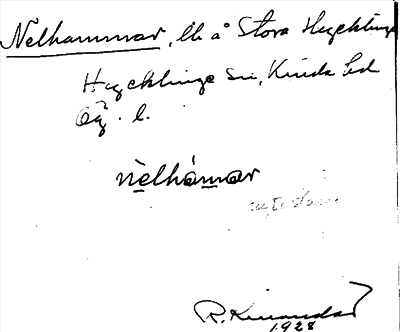 Nelhammar, lh å Stora Hycklinge
Hycklinge Sn, Kinda hd
Ög. l.
nelhámar
R. Kinander
1928